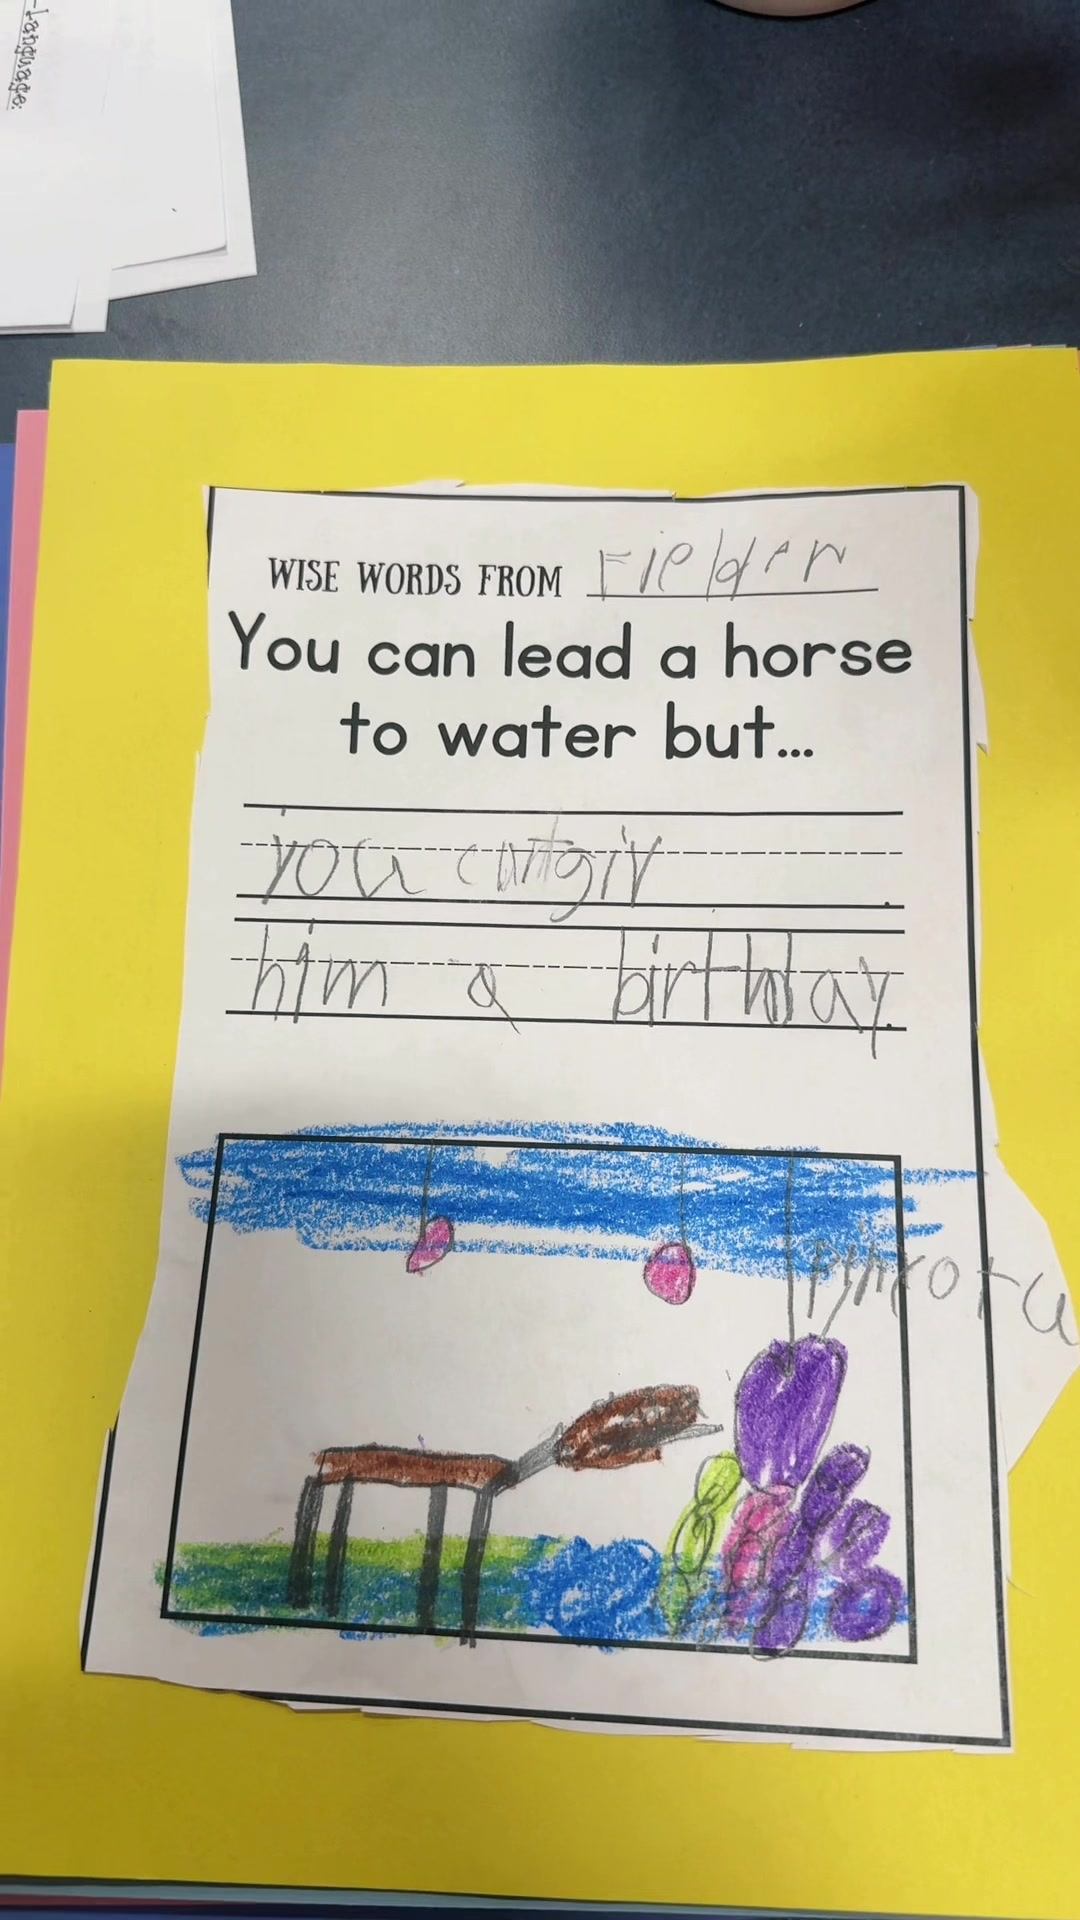 Language:
WISE WORDS FROM Fielder
You can lead a horse
to water but...
you cantgiv
him a birthday.